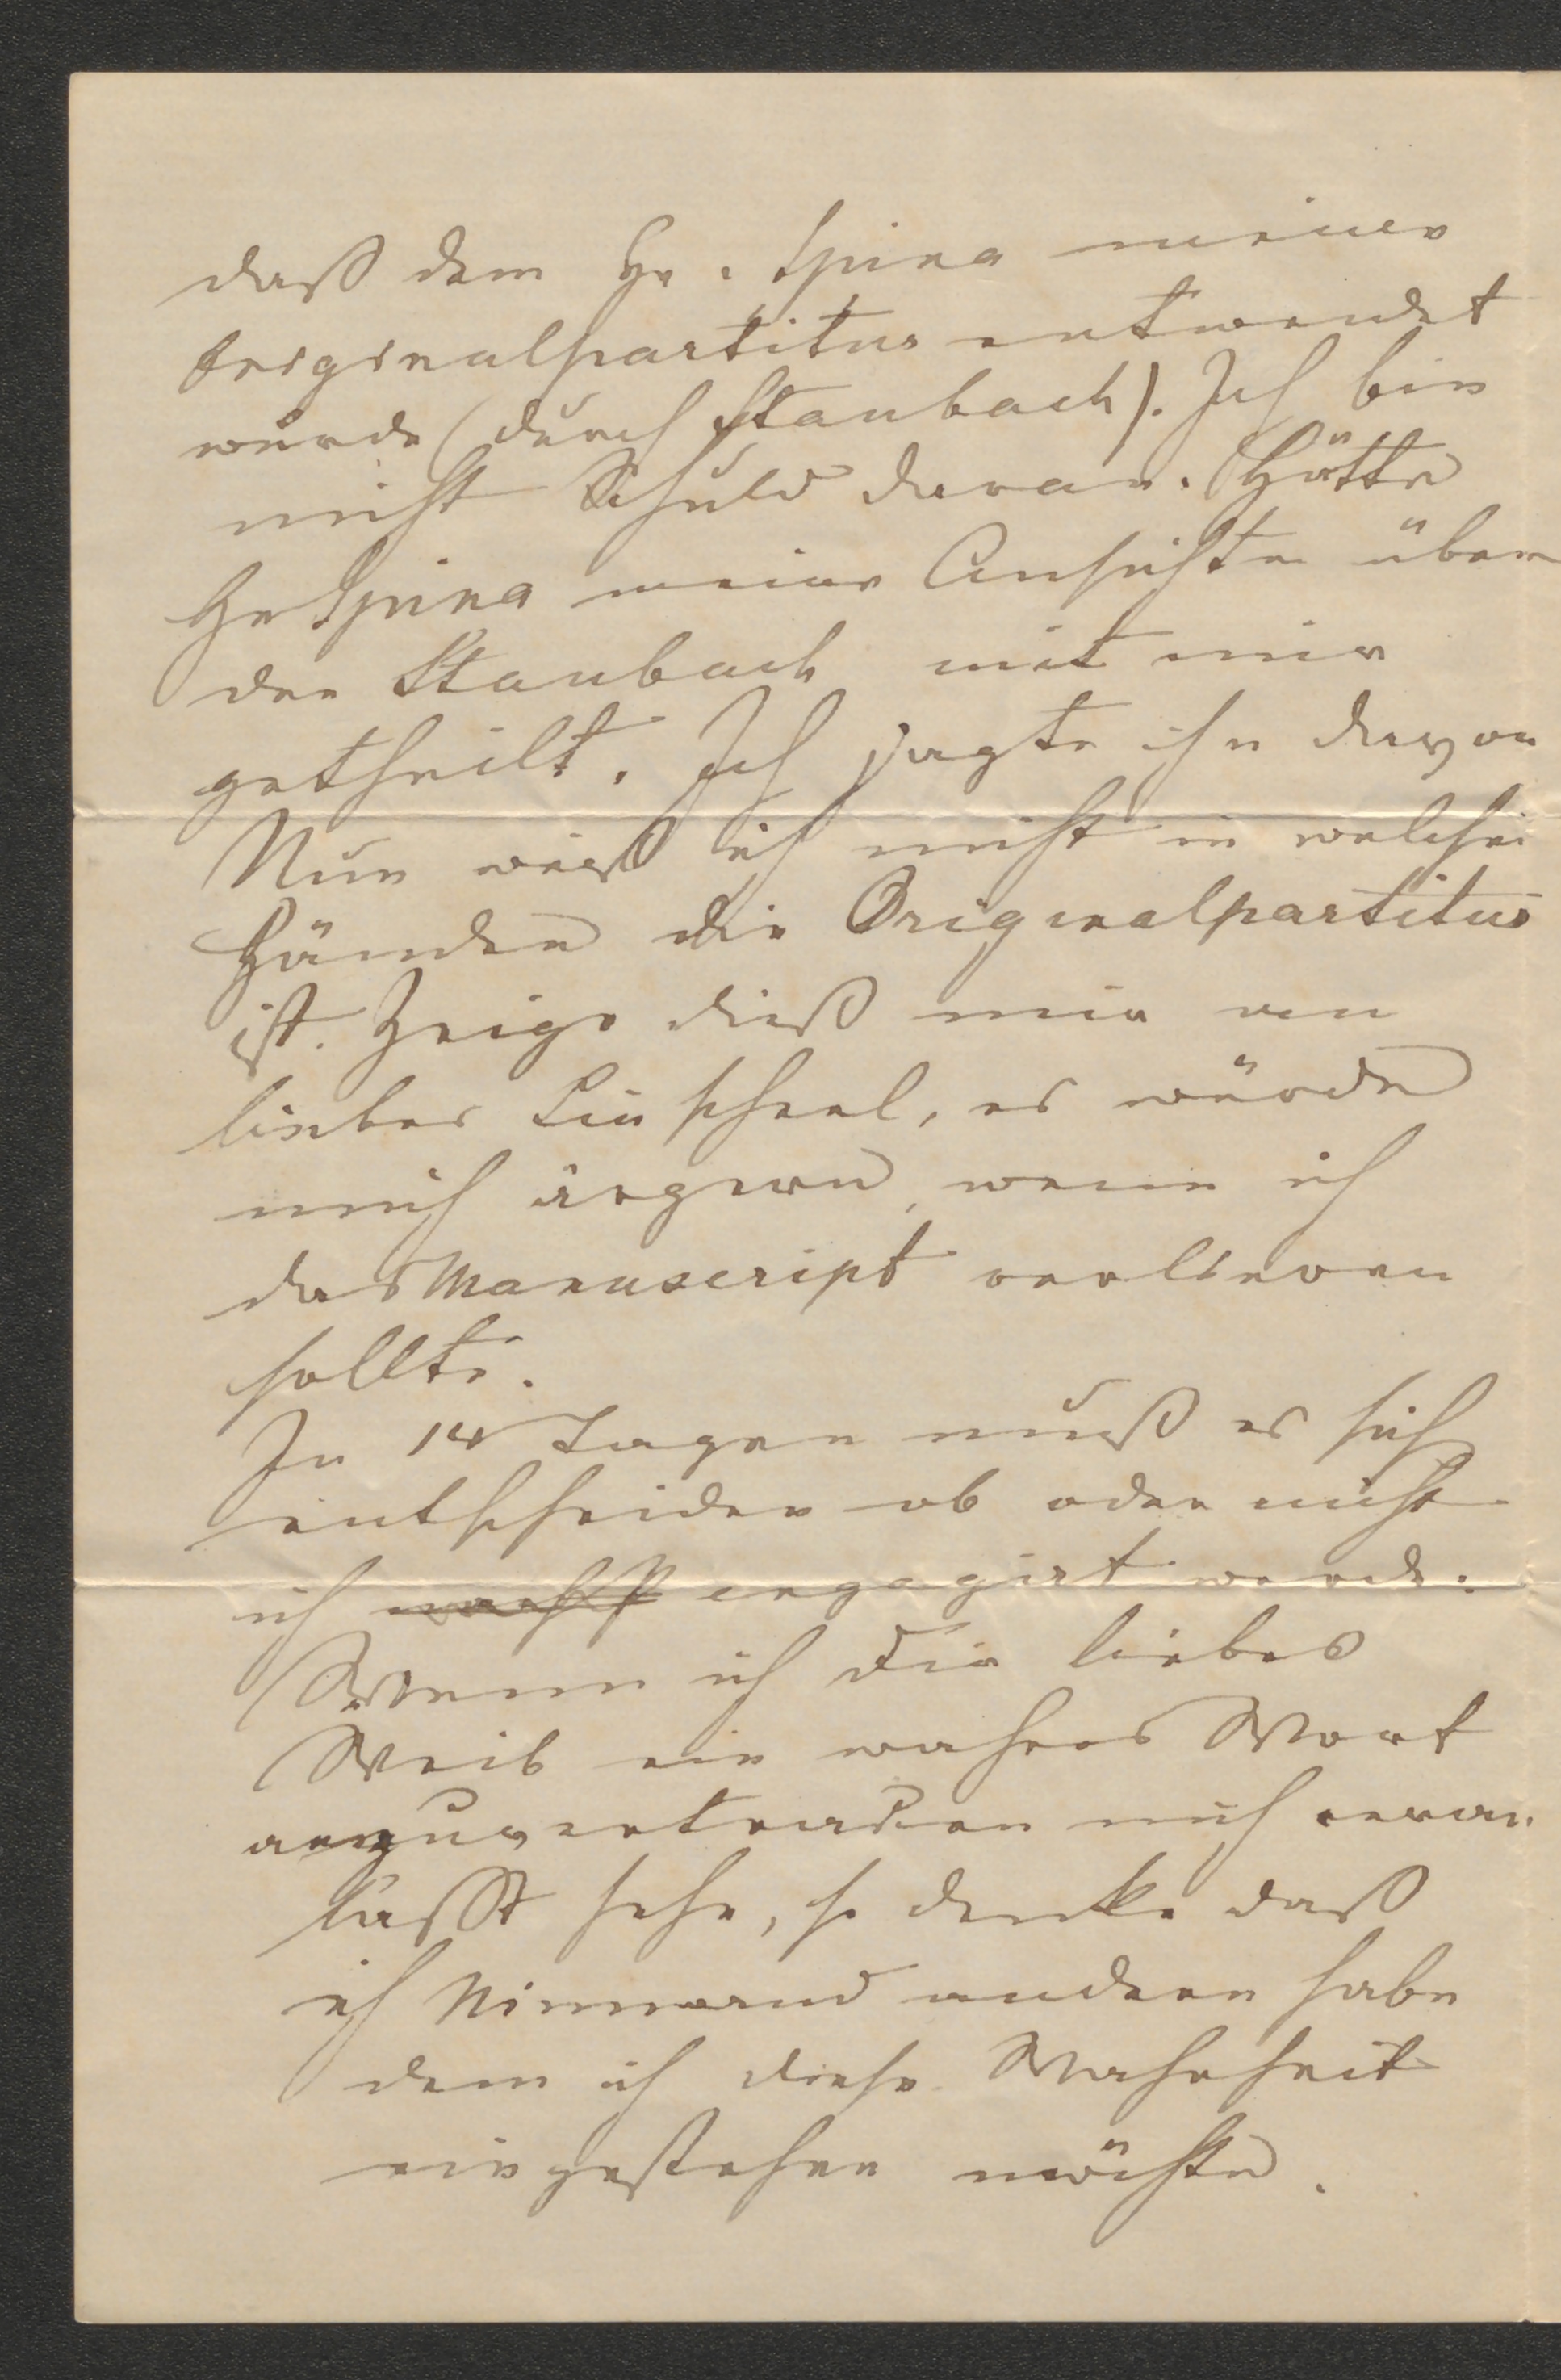 daß dem Hr. Spina meine
Originalpartitur entwendet
wurde (durch Staubach). Ich bin
nicht Schuld daran. Hätte
Hr Spina meine Ansichten über
den Staubach mit mir
getheilt. Ich jagte ihn davon
Nun weiß ich nicht in welchen
Händen die Originalpartitur
ist. Zeige dieß mir an
liebes, es würde
mich ärgern, wenn ich
das Manuscript verlieren
sollte.
In 14 Tagen muß es sich
entscheiden ob oder nicht
ich engagirt werde.
Wenn ich Dir liebes
Weib ein wahres Wort
anzuvertrauen mich veran
laßt sehe, so denke daß
ich Niemand andern habe
dem ich diese Wahrheit
eingestehen möchte.